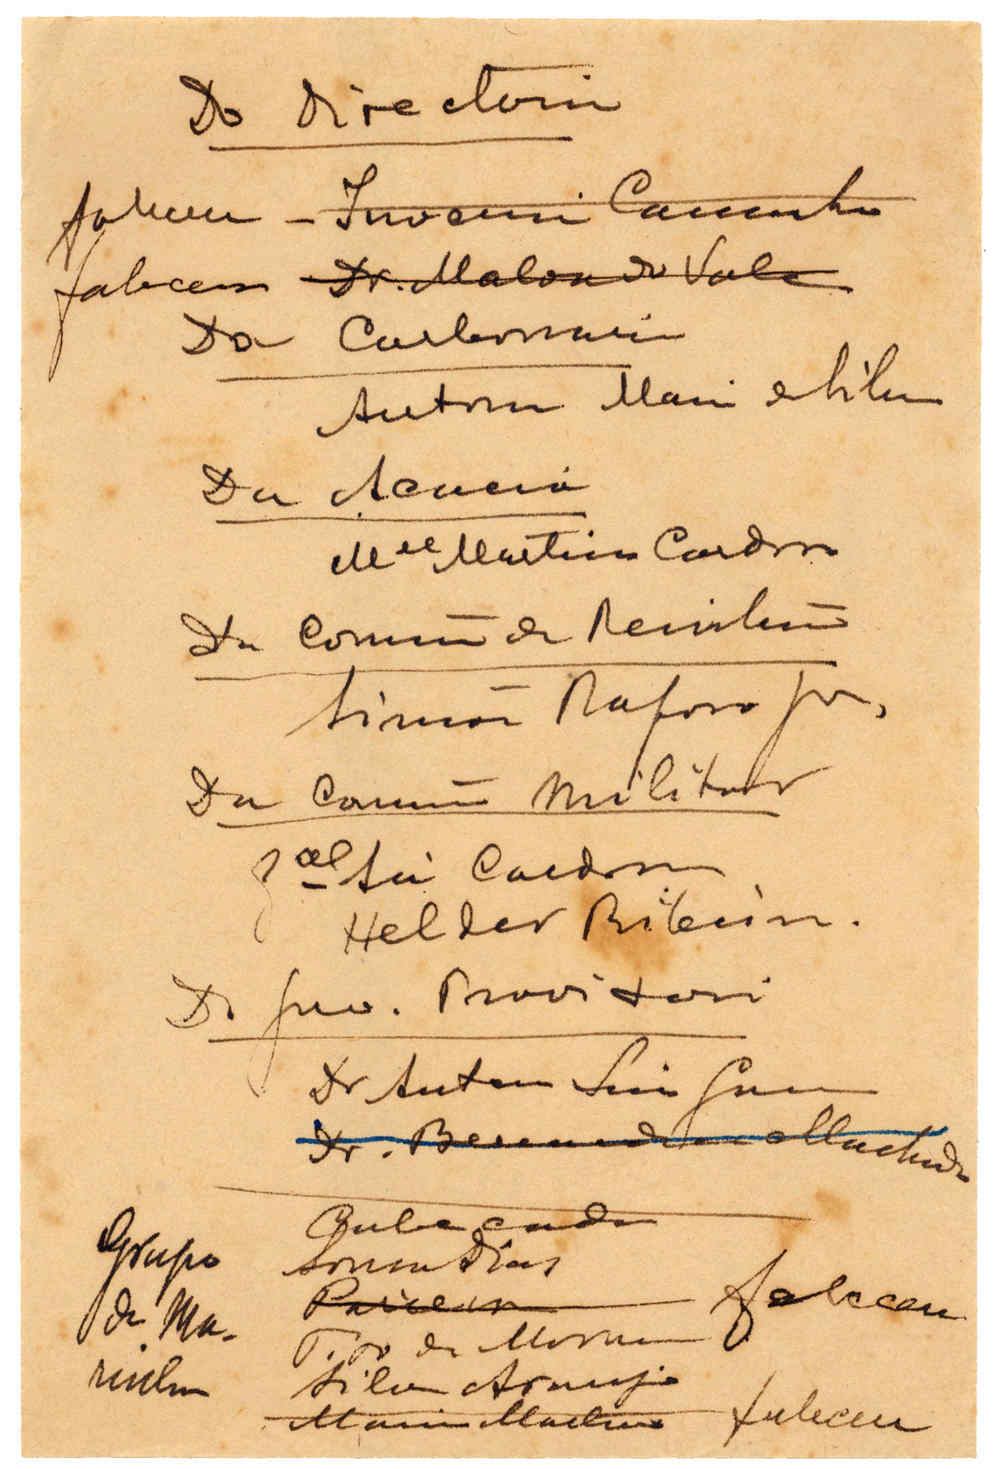 Do Directorio
faleceu - Inocencio Camacho
faleceu Dr. Malva do Vale
Da Carbonaria
Antonio Maria da Silva
Da Acacia
Mel Martins Cardoso
Da Comm. de Resistencia
Simões Raposo Jor.
Da Comm. Militar
Gal Sá Cardoso
Helder Ribeiro.
Do Gov. Provisorio
Dr Antonio Luis Gomes
Dr. Bernardino Machado
Grupo de Marinha
Sousa Dias
Parreira faleceu
Tito de Moraes
Silva Araujo
Maria faleceu